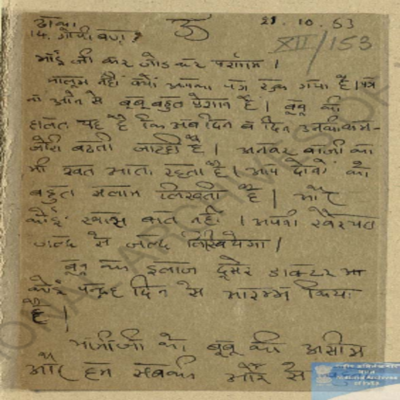 ढाका
14, गोपी बाग ?
ॐ
29.10.53
XII/153
भाई जी कर जोड कर प्रणाम ।
मालूम नहीं क्यों आपका पत्र रुक गया है । पत्र
न आने से बूबू बहुत परेशान है । बूबू की
हालत यह है कि अब दिन व दिन उनकी कम-
जोरी बढती जा रही है । अनवर बाजी का
भी खत आता रहता है । आप दोनों को
बहुत सलाम लिखती है । और
कोई खास बात नहीं । अपनी खैरियत
जल्द से जल्द लिखियेगा ।
बूबू का इलाज दूसरे डाक्टर का
कोई पन्द्रह दिन से आरम्भ किया
है ।
को बूबू की असीस
और हम सबकी ओर से